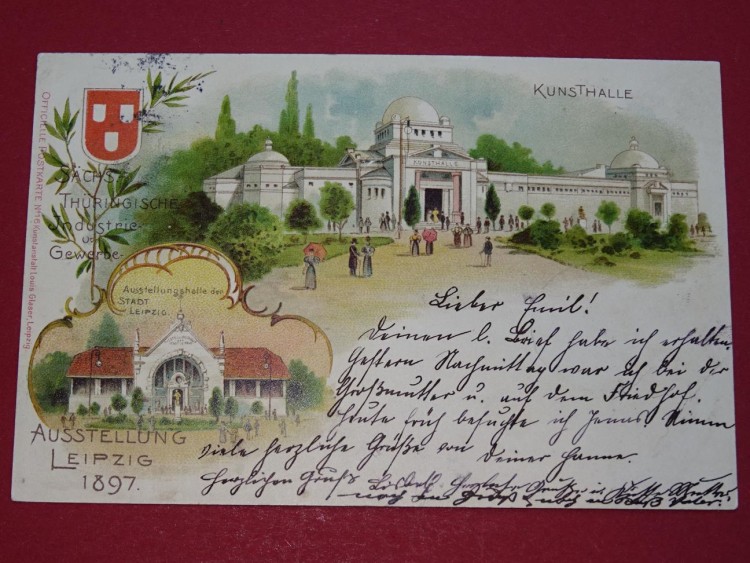 KUNSTHALLE
KUNSTHALLE
SÄCHS.
THÜRINGISCHE
Industrie-
u.
Gewerbe-
OFFICIELLE POSTKARTE No 16 Kunstanstalt Louis Glaser, Leipzig
Ausstellungshalle der
STADT
LEIPZIG.
AUSSTELLUNG
LEIPZIG
1897.
Lieber Emil!
Deinen l. Brief habe ich erhalten.
Gestern Nachmittag war ich bei der
Großmutter u. auf dem Friedhof.
Heute früh besuchte ich
viele herzliche Grüße von
Deiner Hanne.
Herzlichen Gruß